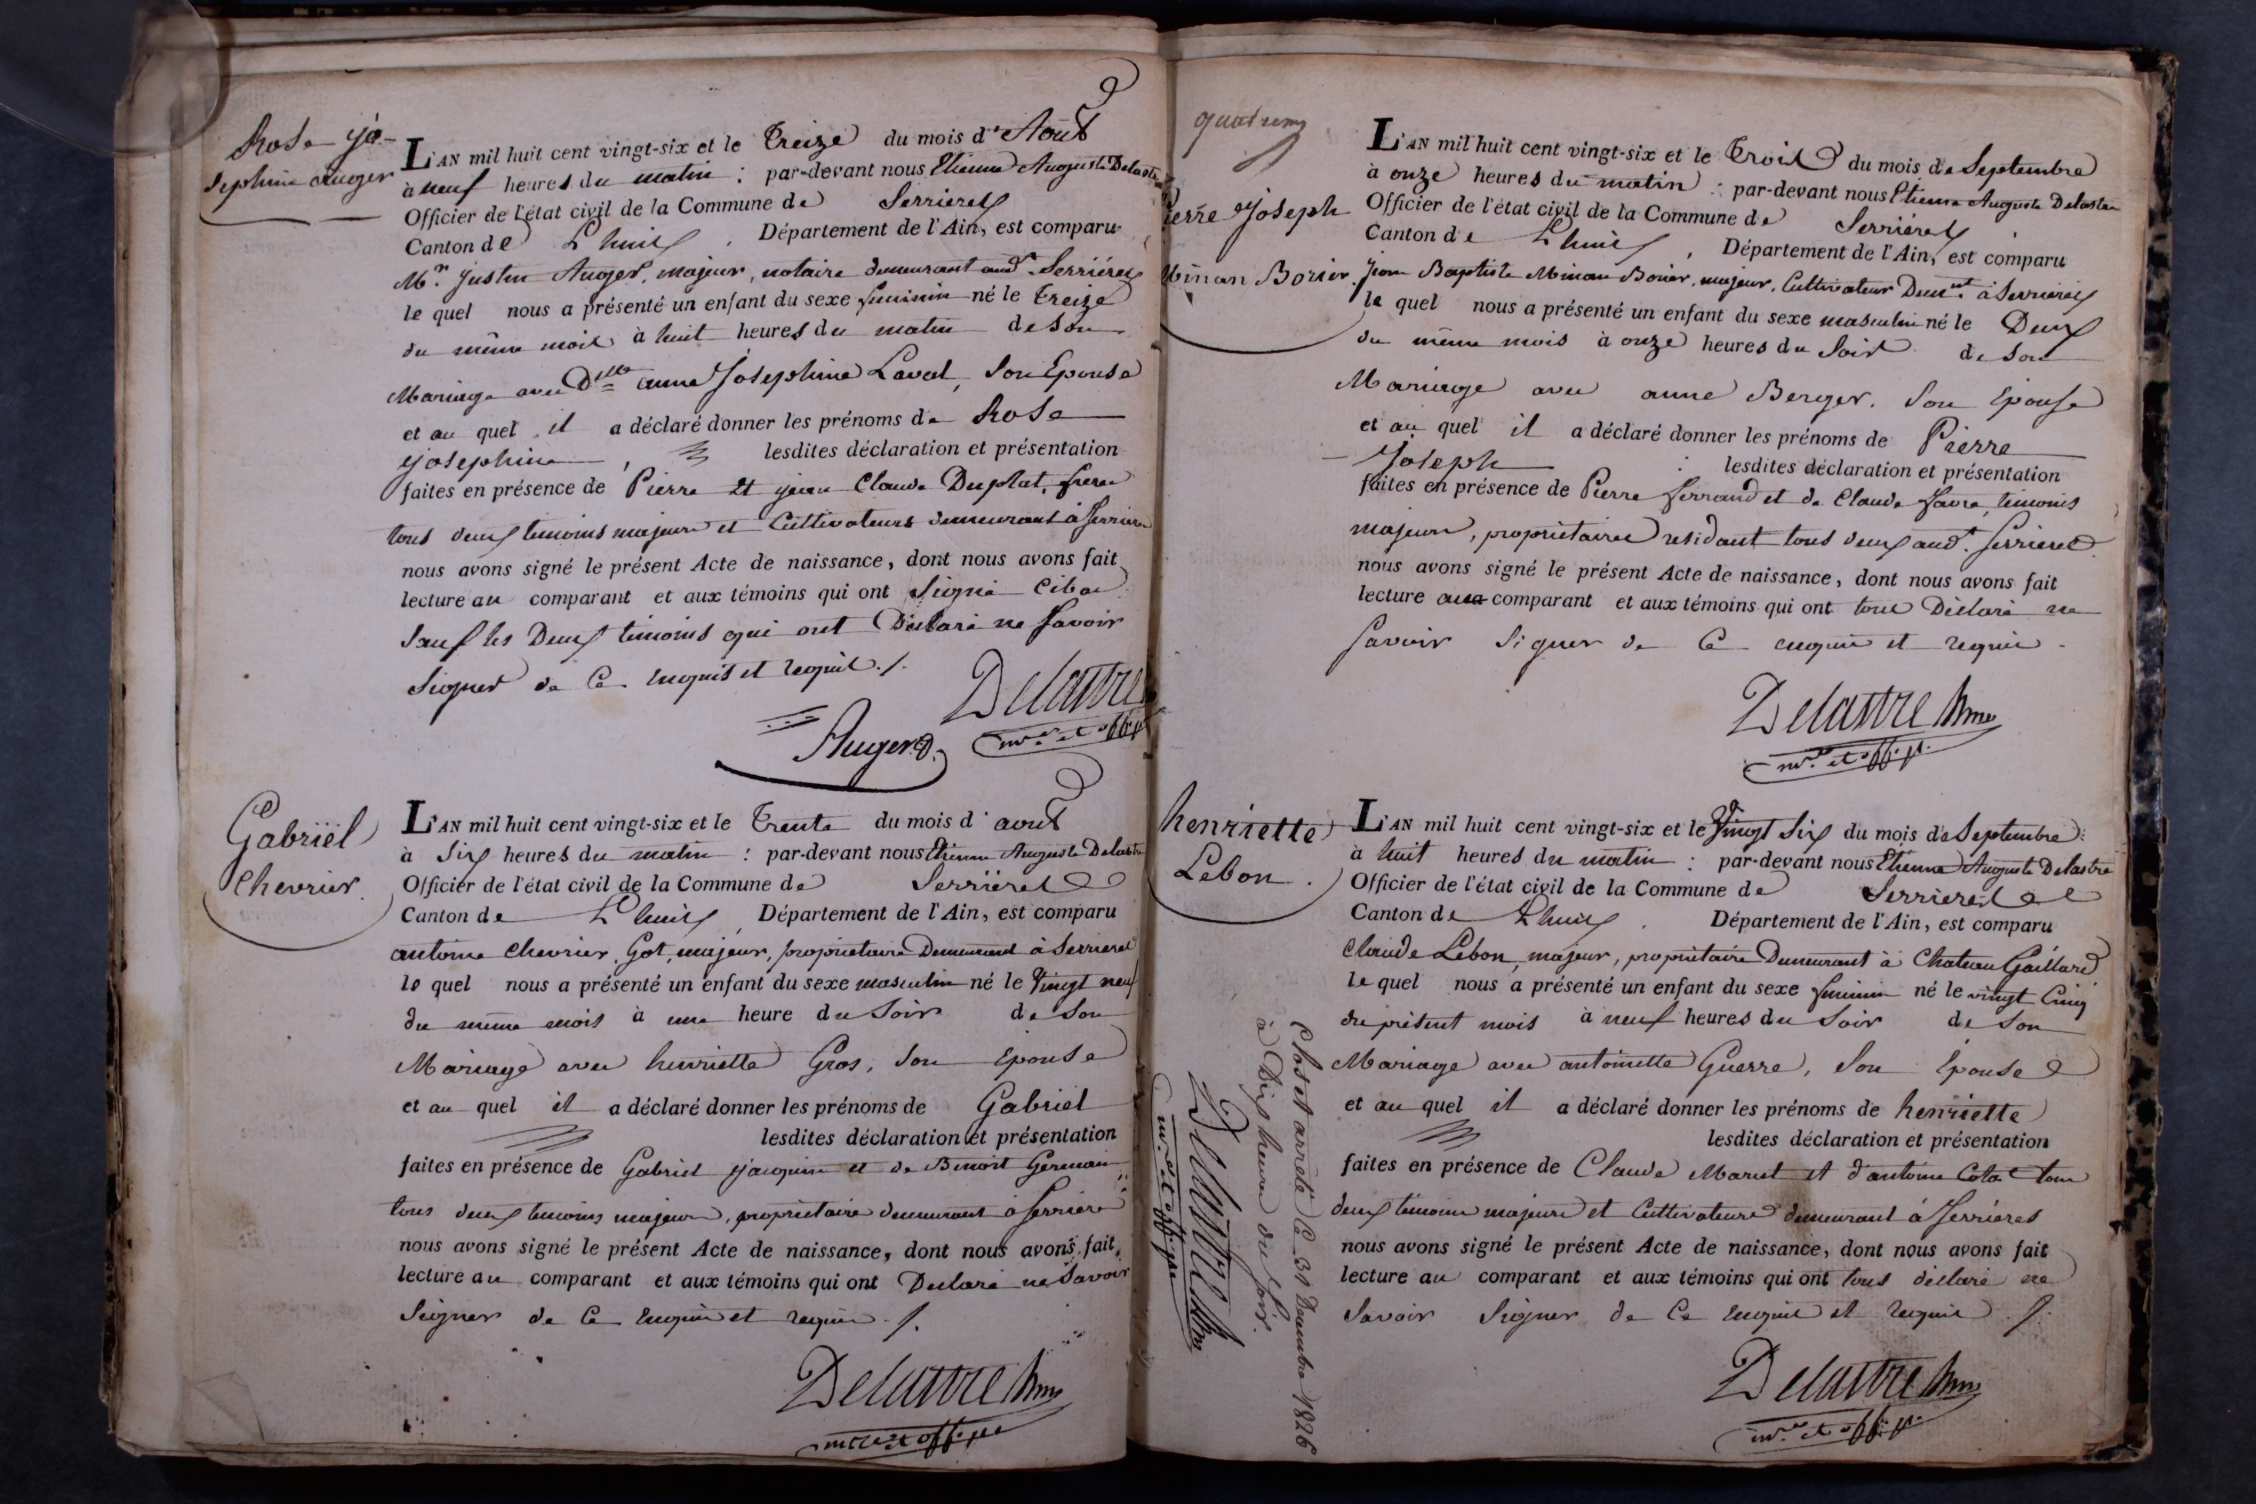 Rose Jo-
sephine auger
L'AN mil huit cent vingt-six et le Treize du mois d'Août
à neuf heures du matin : par-devant nous Etienne Auguste Delastre
Officier de l'état civil de la Commune de Serrieres
Canton de Lhuis, Département de l'Ain, est comparu
Mr. Justin Auger, majeur, notaire demeurant aud. Serriéres
le quel nous a présenté un enfant du sexe feminin né le Treize
du même mois à huit heures du matin de son
Mariage avec Dlle anne Josephine Laval, son Epouse
et au quel il a déclaré donner les prénoms de Rose
josephine, lesdites déclaration et présentation
faites en présence de Pierre et jean Claude Duplat, freres
tous deux temoins majeurs et Cultivateurs demeurant à Serrieres
nous avons signé le présent Acte de naissance, dont nous avons fait
lecture au comparant et aux témoins qui ont Signé
Sauf les Deux temoins qui ont Déclaré ne Savoir
Signer de Ce enquis et requis ./.
Delastre
Auger
mre et off. pc
Gabriël
Chevrier
L'AN mil huit cent vingt-six et le Trente du mois d'aout
à Six heures du matin : par-devant nous Etienne Auguste Delastre
Officier de l'état civil de la Commune de Serriéres
Canton de Lhuis, Département de l'Ain, est comparu
antoine Chevrier, Got, majeur, propriétaire Demeurant à Serrieres
le quel nous a présenté un enfant du sexe masculin né le Vingt neuf
du même mois à une heure du Soir de Son
Mariage avec henriette Gros, Son Epouse
et au quel il a déclaré donner les prénoms de Gabriël
lesdites déclaration et présentation
faites en présence de Gabriel jacquin et de Benoit Germain
tous deux temoins majeurs, propriétaires demeurant à Serrieres
nous avons signé le présent Acte de naissance, dont nous avons fait
lecture au comparant et aux témoins qui ont Declaré ne Savoir
Signer de Ce enquis et requis ./.
Delastre
mre et off. pc
Pierre Joseph
Minan Borier
L'AN mil huit cent vingt-six et le Trois du mois de Septembre
à onze heures du matin : par-devant nous Etienne Auguste Delastre
Officier de l'état civil de la Commune de Serriéres
Canton de Lhuis, Département de l'Ain, est comparu
Jean Baptiste Minan Borier, majeur, Cultivateur Demt. à Serrieres
le quel nous a présenté un enfant du sexe masculin né le Deux
du même mois à onze heures du Soir de Son
Mariage avec anne Berger, Son Epouse
et au quel il a déclaré donner les prénoms de Pierre
Joseph : lesdites déclaration et présentation
faites en présence de Pierre ferrand et de Claude favre, temoins
majeurs, propriétaires residant tous deux aud. Serrieres
nous avons signé le présent Acte de naissance, dont nous avons fait
lecture au comparant et aux témoins qui ont tous Déclaré ne
Savoir Signer de Ce enquis et requis.
Delastre
mre et off. pc
henriette
Lebon
L'AN mil huit cent vingt-six et le Vingt Six du mois de Septembre
à huit heures du matin : par-devant nous Etienne Auguste Delastre
Officier de l'état civil de la Commune de Serrieres
Canton de Lhuis, Département de l'Ain, est comparu
Claude Lebon, majeur, propriétaire Demeurant à Chateau Gaillard
le quel nous a présenté un enfant du sexe feminin né le vingt Cinq
du présent mois à neuf heures du Soir de Son
Mariage avec antoinette Guerre, Son Épouse
et au quel il a déclaré donner les prénoms de henriette
lesdites déclaration et présentation
faites en présence de Claude Maret et d'antoine Cota tous
deux témoins majeurs et Cultivateurs demeurant à Serriéres
nous avons signé le présent Acte de naissance, dont nous avons fait
lecture au comparant et aux témoins qui ont tous déclaré ne
Savoir Signer de Ce enquis et requis ./.
Delastre
mre et off. pc
Clos et arrêté Ce 31 Decembre 1826
à Dix heures du Soir.
Delastre
mre et off. pc